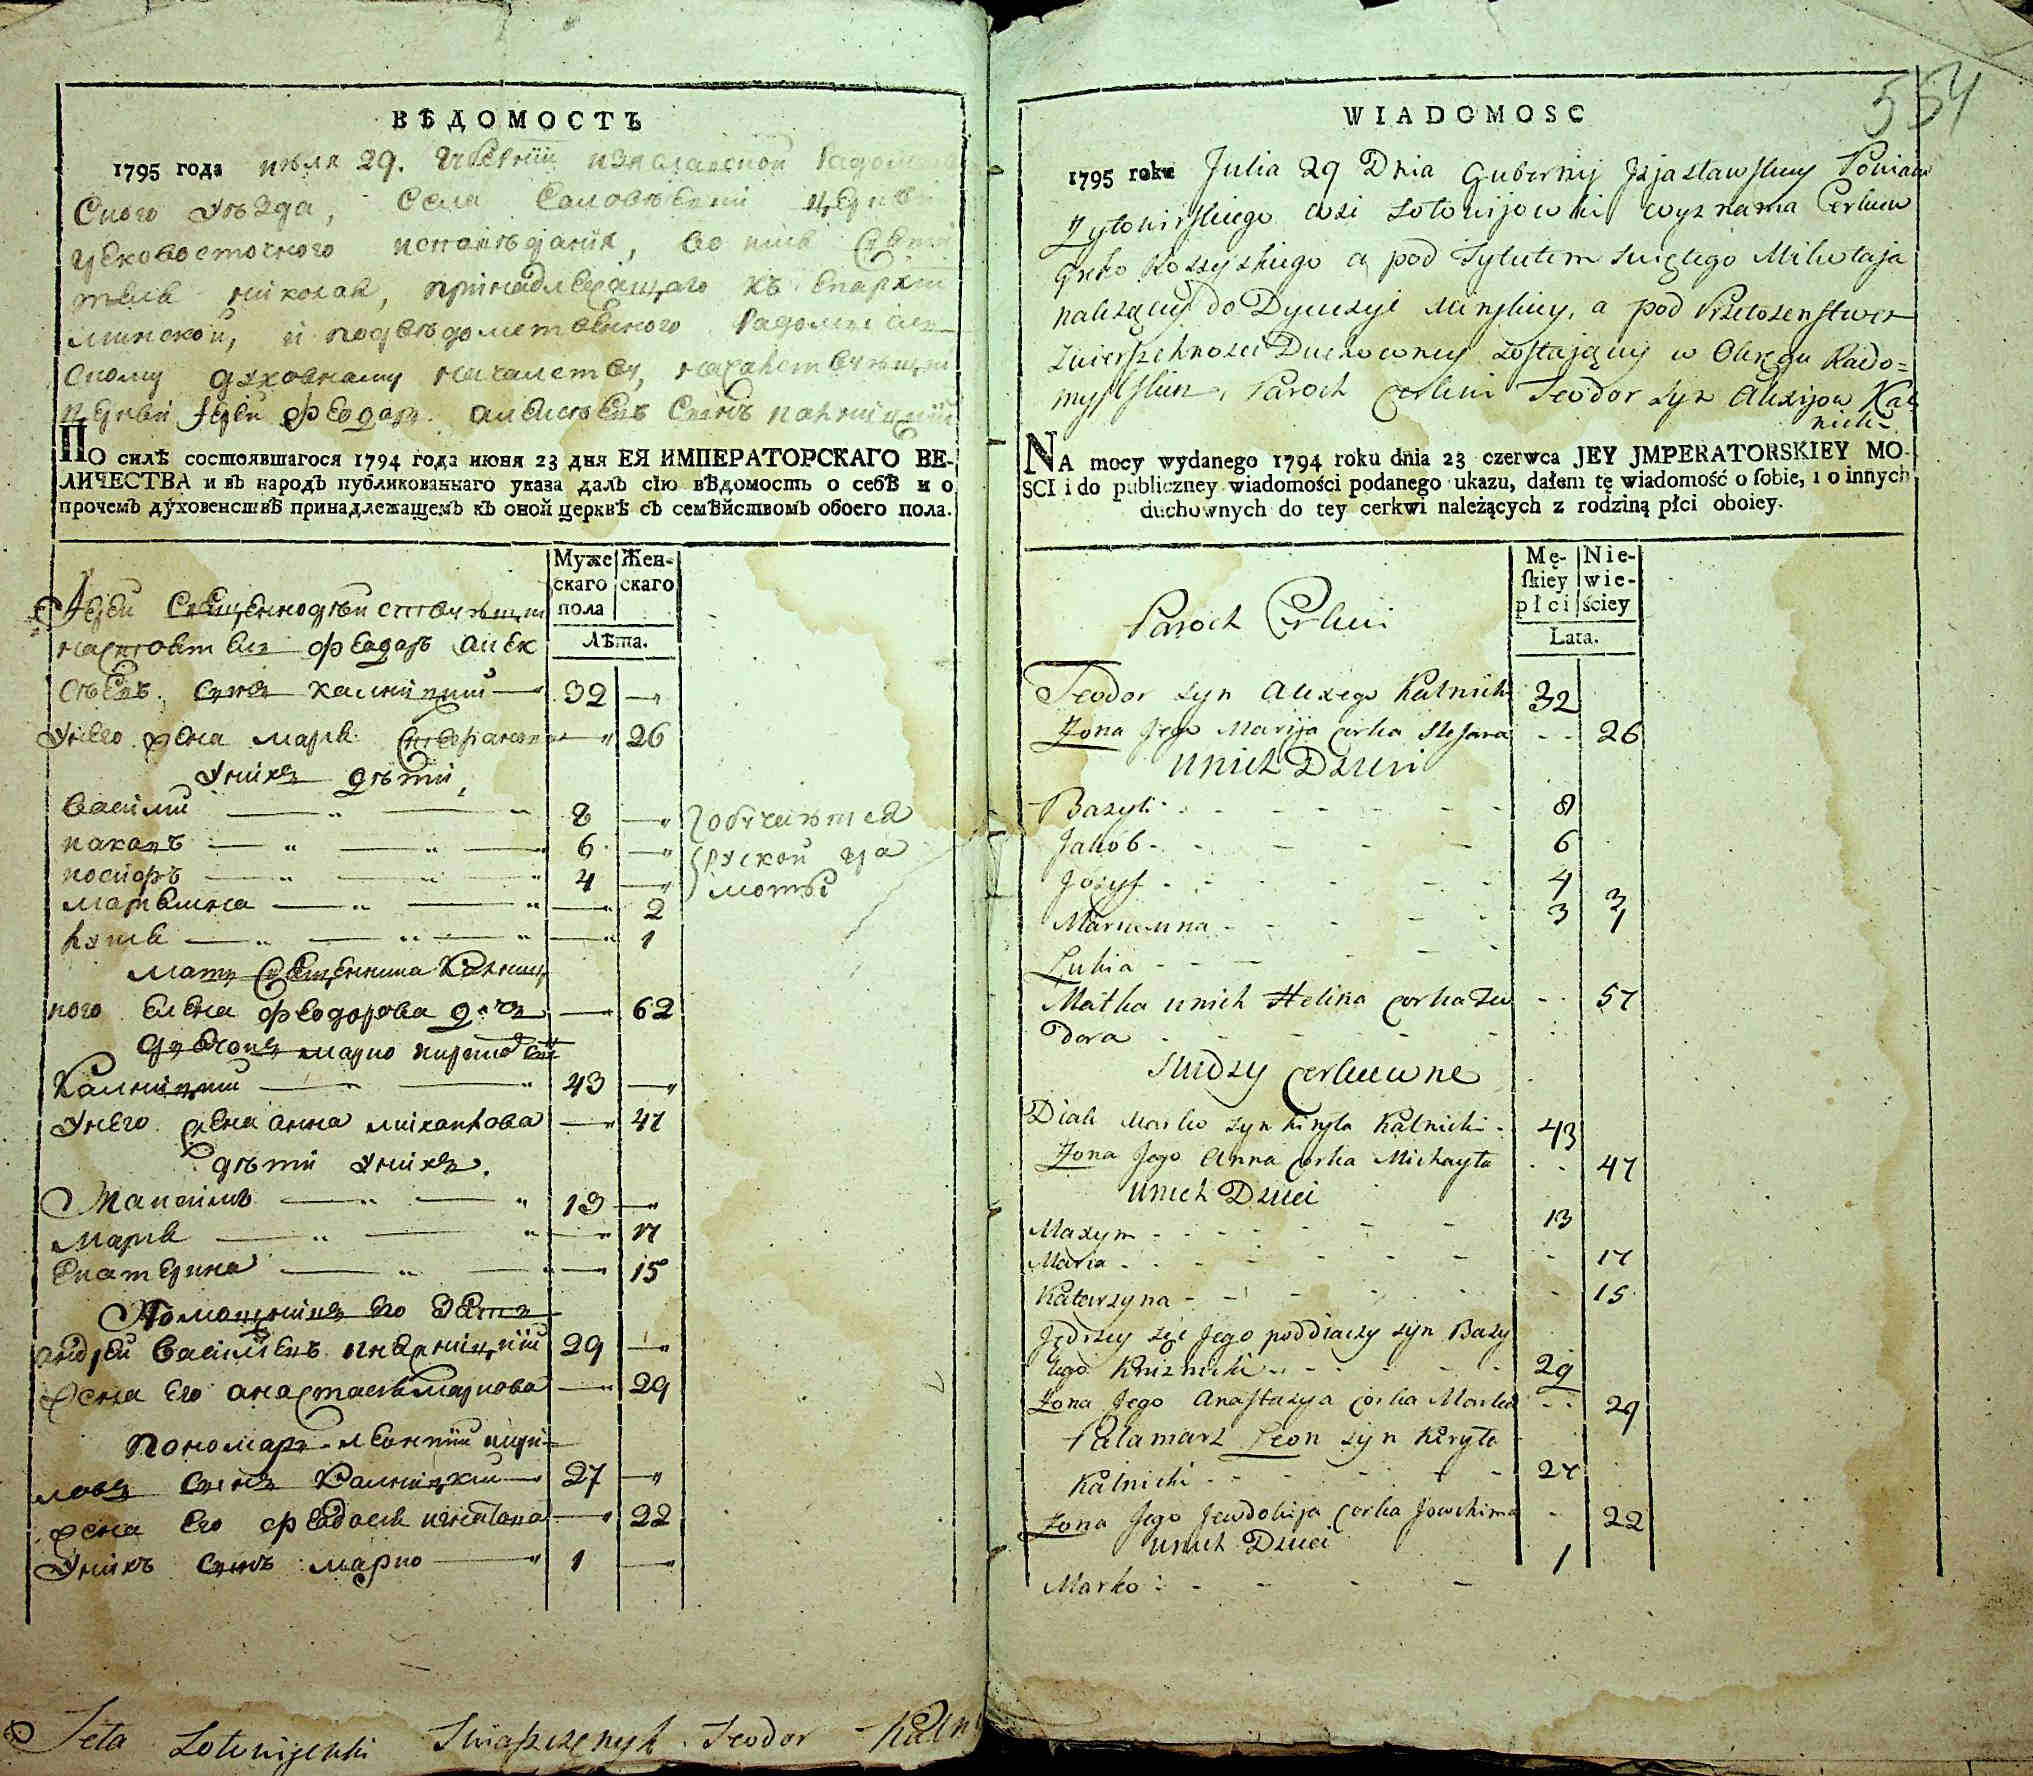 ВѢДОМОСТЬ
1795 года июля 29. Губернии Изяславской Радомысл
скаго уезда, села Соловьевки церкви
грековосточного исповедания, во имя святи
теля Николая, принадлежащаго къ епархии
минской, и подведомственного Радомысль
скому духовному началству, началствующий
церкви Iерей Феодоръ Алексеевъ синъ Калницкий
ПО силѣ состоявшагося 1794 года июня 23 дня ЕЯ ИМПЕРАТОРСКАГО ВЕ-
ЛИЧЕСТВА и въ народъ публикованнаго указа далъ сїю вѣдомость о себѣ и о
прочемъ духовенствѣ принадлежащемъ къ оной церквѣ съ семѣйствомъ обоего пола.
Муже скаго пола Жен- скаго
Лѣта.
Iерей священнодействующий
настоятель Феодоръ Алек
сеевъ синъ Калницкий 32
У него жена Мария Стефанова 26
У нихъ дети,
Василий 8 обучается
Иаковъ 6 руской гра
Иосифъ 4 моте
Мариянна 2
Лукия 1
Мать священника Калниц
кого Елена Феодорова дочь 62
Дячокъ Марко Кириловъ
Калницкий 43
У него жена Анна Михайлова 47
дети у нихъ.
Максимъ 13
Мария 17
Екатерина 15
Помощникъ его зять
Андрей Васильевъ 29
жена его Анастасия Маркова 29
Пономарь Леонтий Кири
ловъ синъ Калницкий 27
жена его Феодосия 22
У нихъ синъ Марко 1
Teodor Kaln
554
WIADOMOSC
1795 roku Julia 29 Dnia Gubernij Jzjaslawskiey Powiatu
Zytomirskiego wsi Solowijowki wyznania Cerkwi
Greko Rossyskiego a pod Tytulem Swiętego Mikolaja
nalezącey do Dyecezyi Minskiey, a pod Przelozenstwem
Zwierzchnosci Duchowney zostającey w Okręgu Rado=
myslskim, Paroch Cerkwi Teodor syn Alexijow Kal
nicki
NA mocy wydanego 1794 roku dnia 23 czerwca JEY JMPERATORSKIEY MO-
SCI i do publiczney wiadomości podanego ukazu, dałem tę wiadomość o ſobie, i o innych
duchownych do tey cerkwi należących z rodziną płci oboiey.
Mę- ſkiey płci Nie- wie- ściey
Lata.
Paroch Cerkwi
Teodor syn Alexego Kalnicki 32
Zona Jego Maryja corka Stefana 26
U nich Dzieci
Bazyli 8
Jakób 6
Jozyf 4
Marianna 3 3
Lukia 1
Matka u nich Helina corka Teo 57
dora
Sludzy Cerkiewne
Diak Marko syn Kiryla Kalnicki 43
Zona Jego Anna corka Michayla 47
U nich Dzieci
Maxym 13
Maria 17
Katarzyna 15
Jędrzey zięć Jego poddiaczy syn Bazy
lego 29
Zona Jego Anastazya corka Marka 29
Palamarz Leon syn Kiryla
Kalnicki 27
Zona Jego Jewdokija corka Jowchima 22
U nich Dzieci
Marko 1